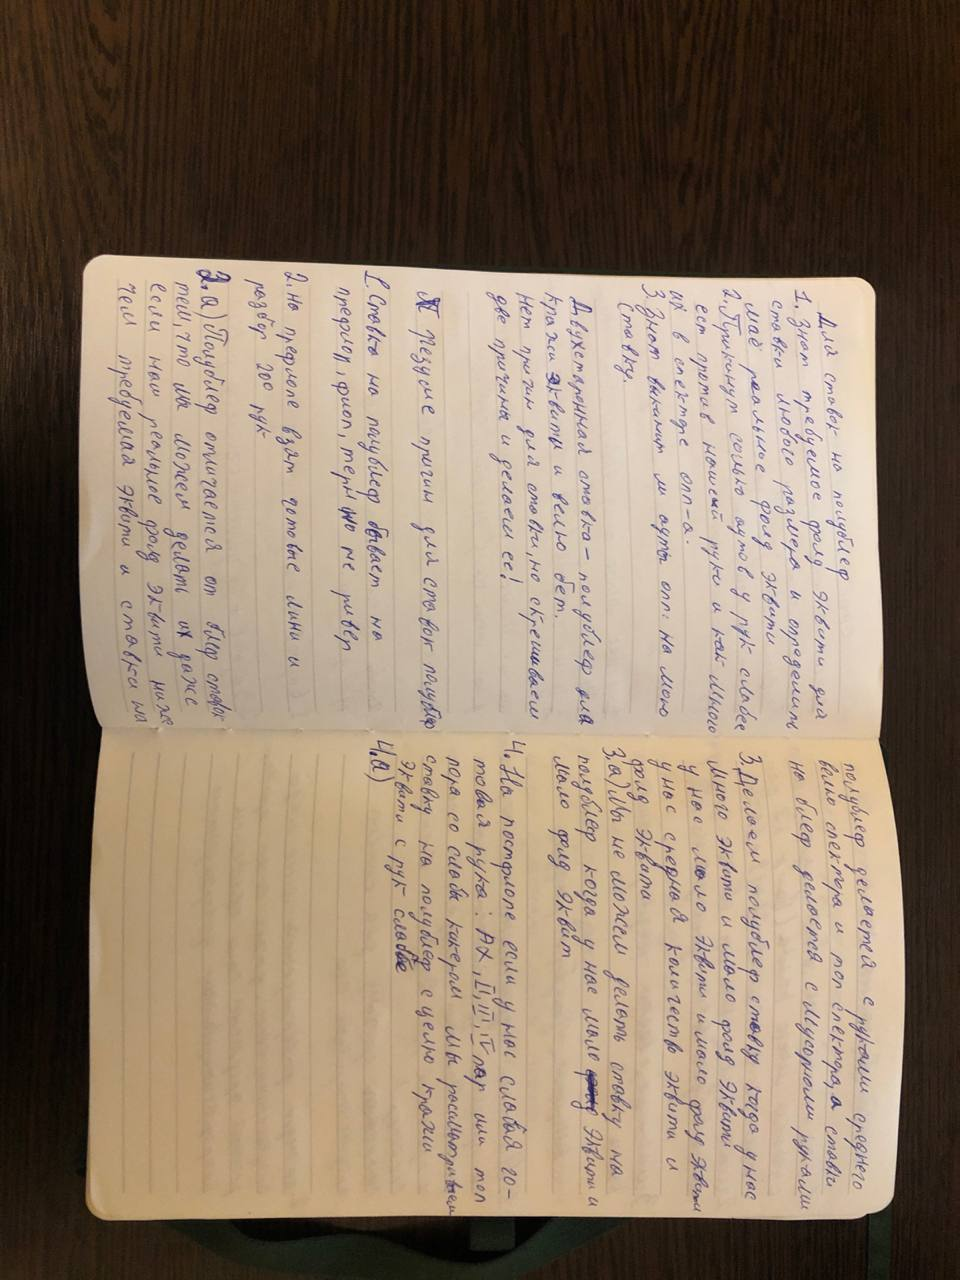 Для ставок на полублеф
1. Знат требуемое фолд эквити для
ставки любого размера и определить
моё реальное фолд эквити
2. Прикинут солько аутов у рук слабее
ест против нашей руки и как много
их в спектре опп-а.
3. Знат выкинит ли ауты опп. на мою
ставку.
Двухстаронная ставка – полублеф для
кражи эквити и велю бет.
Нет причин для ставки, но скрешиваем
две причины и делаем ее!
Резюме причин для ставок полублеф
1. Ставка на полублеф бывает на
префлоп, флоп, терн но не ривер
2. На префлопе взят готовые лини и
разбор 200 рук
2. а) Полублеф отличается от блеф ставок
тем, что мы можем делать их даже
если наш реальное фолд эквити ниже
чем требуемая эквити и ставки на
полублеф делается с руками среднего
велю спектора и топ спектора, а ставки
на блеф делается с мусорными руками
3. Делаем полублеф ставку когда у нас
много эквити и мало фолд эквити
у нас мало эквити и мало фолд эквити
у нас средная количество эквити и
фолд эквити
3. а) Мы не можем делать ставку на
полублеф когда у нас мало эквити и
мало фолд эквит
4. На постфлопе если у нас слабая го-
товая рука: AX, II, III, IV пар или топ
пара со слабы кикером мы расматриваем
ставку на полублеф с целю кражи
эквити с рук слабее
4. а)